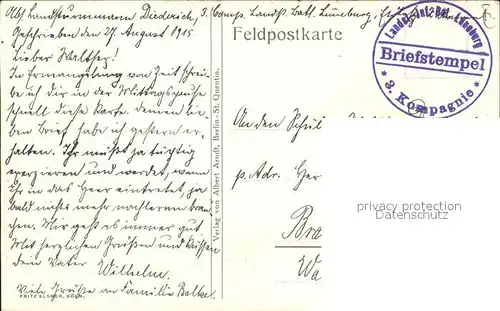 Abs. Landsturmmann Diederich, 3. Comp. Landst. Batl. Lüneburg,
Geschrieben den 27 August 1915
Lieber Walther!
In Ermangelung von Zeit schrei-
be ich dir in der Mittagspause
schnell diese Karte. deinen lie-
ben Brief habe ich gestern er-
halten. Ihr müßt ja tüchtig
exerzieren und werdet, wenn
Ihr in das Heer eintretet, ja
bald nichts mehr nachlernen brau-
chen. Mir geht es immer gut.
Mit herzlichen Grüßen und Küssen
dein Vater Wilhelm.
Viele Grüße an Familie
FRITZ ELSNER, KÖLN.
Verlag von Albert Arendt, Berlin-St. Quentin.
Feldpostkarte
Landst. Inf. Bat. Lüneburg
Briefstempel
* 3. Kompagnie *
An den Schül
p. Adr. Her
Bra
Wa
privacy protection
Datenschutz